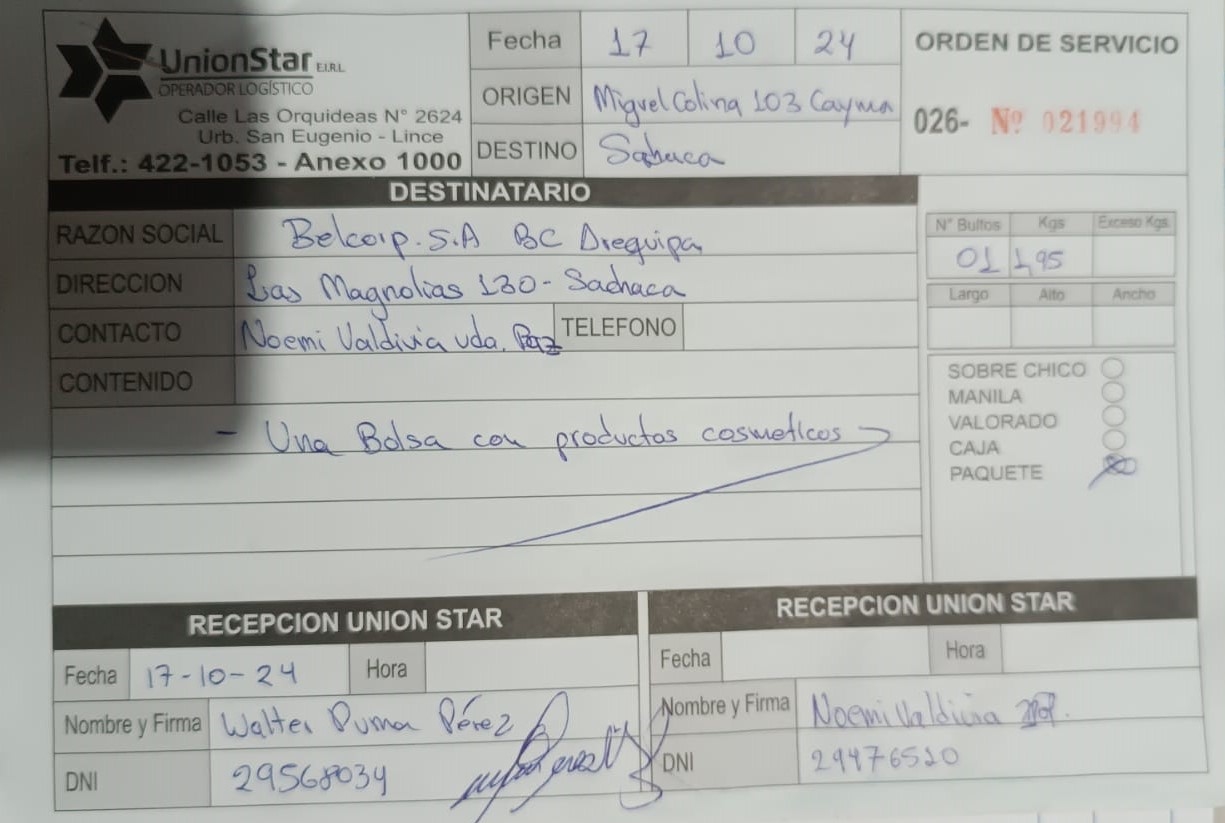 UnionStar E.I.R.L
OPERADOR LOGÍSTICO
Calle Las Orquideas N° 2624
Urb. San Eugenio - Lince
Telf.: 422-1053 - Anexo 1000
Fecha 17 10 24
ORIGEN Miguel Colina 103 Cayma
DESTINO Sahaca
ORDEN DE SERVICIO
026- Nº 021994
DESTINATARIO
RAZON SOCIAL Belcorp. S.A BC Arequipa
DIRECCION Las Magnolias 130- Sachaca
CONTACTO Noemi Valdivia vda. Paz TELEFONO
CONTENIDO
- Una Bolsa con productos cosmeticos
N° Bultos Kgs Exceso Kgs.
01 1,95
Largo Alto Ancho
SOBRE CHICO
MANILA
VALORADO
CAJA
PAQUETE
RECEPCION UNION STAR
Fecha 17-10-24 Hora
Nombre y Firma Walter Puma Pérez
DNI 29568034
RECEPCION UNION STAR
Fecha Hora
Nombre y Firma Noemi Valdivia
DNI 29476510